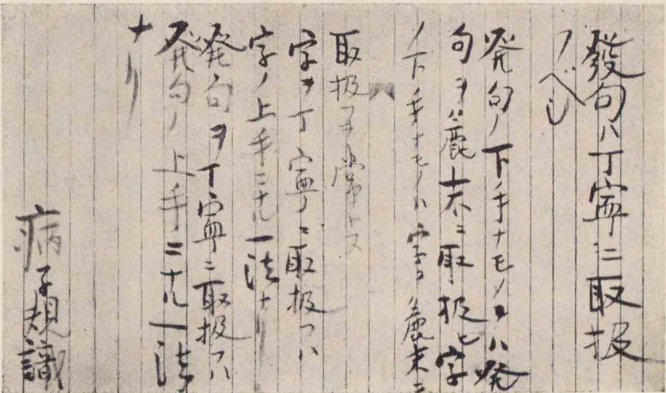 發句ハ丁寧ニ取扱
フベシ
発句ノ下手ナモノハ発
句ヲ麁末ニ取扱ヒ字
ノ下手ナモノハ字ヲ麁末ニ
取扱フヲ常トス
字ヲ丁寧ニ取扱フハ
字ノ上手ニナル一法ナリ
発句ヲ丁寧ニ取扱フハ
発句ノ上手ニナル一法
ナリ
病子規識